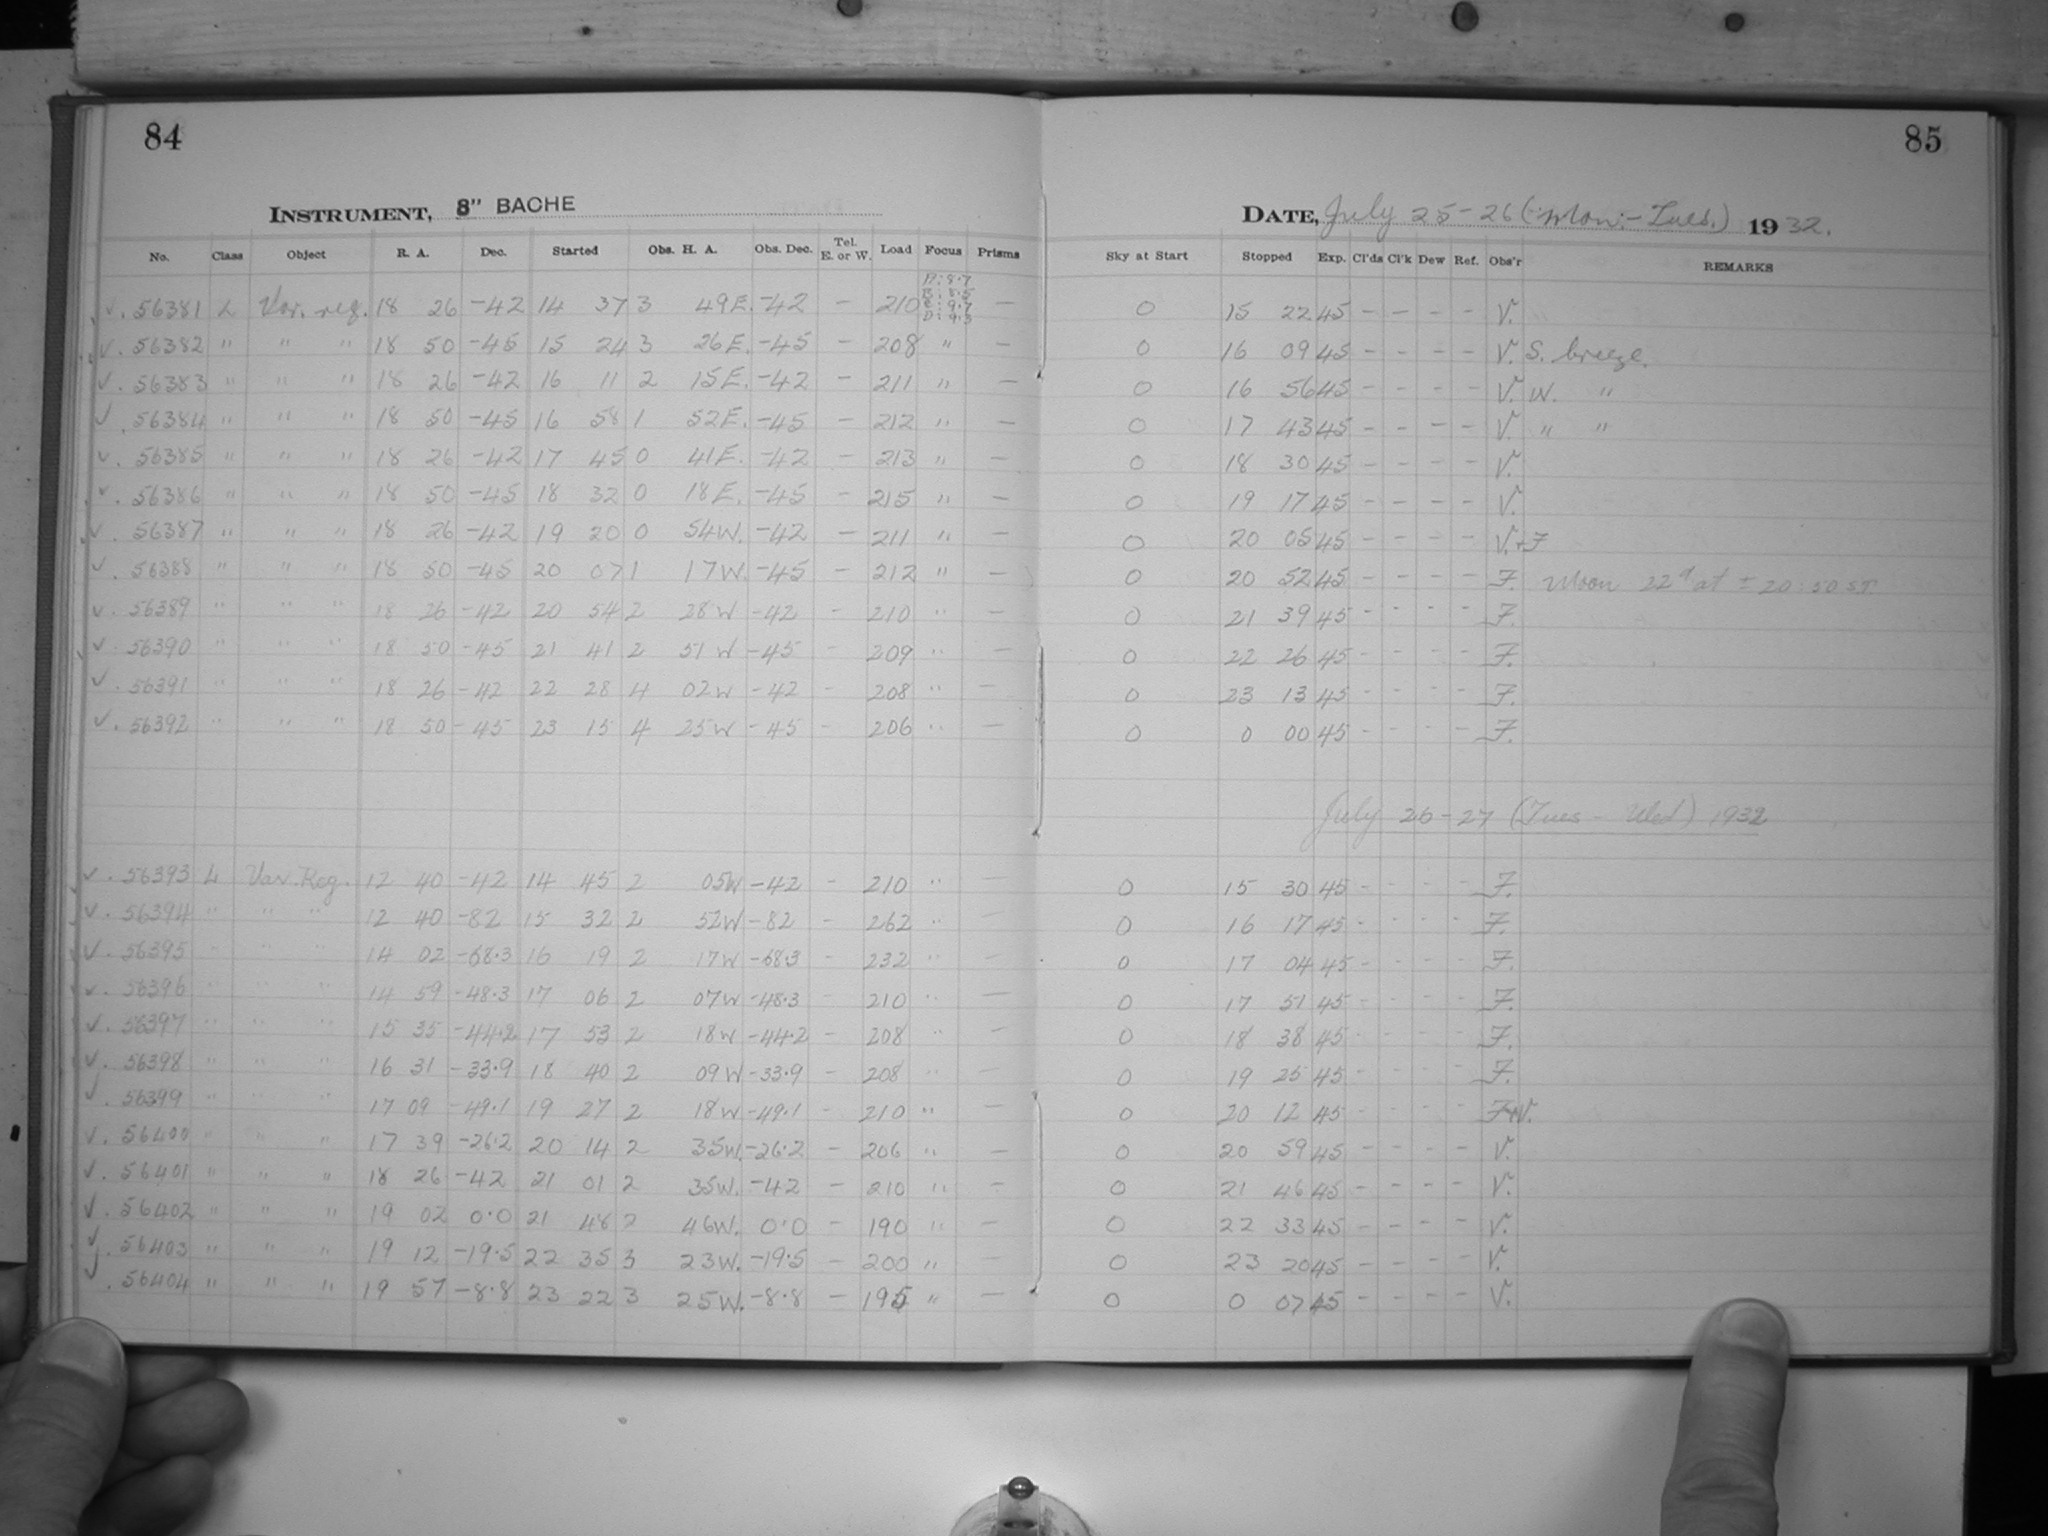 84
85
INSTRUMENT, 8" BACHE
DATE, July 25-26 (Mon.-Tues.) 1932.
No. Class Object R. A. Dec. Started Obs. H. A. Obs. Dec. Tel. E. or W. Load Focus Prisms Sky at Start Stopped Exp. Cl'ds Cl'k Dew Ref. Obs'r REMARKS
✓. 56381 L Var. reg. 18 26 -42 14 37 3 49E. -42 - 210 A: 8.7 B: 8.5 C: 9.7 D: 9.3 - 0 15 22 45 - - - - V.
✓. 56382 " " " 18 50 -45 15 24 3 26E. -45 - 208 " - 0 16 09 45 - - - - V. S. breeze.
✓. 56383 " " " 18 26 -42 16 11 2 15E. -42 - 211 " - 0 16 56 45 - - - - V. W. "
✓. 56384 " " " 18 50 -45 16 58 1 52E. -45 - 212 " - 0 17 43 45 - - - - V. " "
✓. 56385 " " " 18 26 -42 17 45 0 41E. -42 - 213 " - 0 18 30 45 - - - - V.
✓. 56386 " " " 18 50 -45 18 32 0 18E. -45 - 215 " - 0 19 17 45 - - - - V.
✓. 56387 " " " 18 26 -42 19 20 0 54W. -42 - 211 " - 0 20 05 45 - - - - V.+F
✓. 56388 " " " 18 50 -45 20 07 1 17W. -45 - 212 " - 0 20 52 45 - - - - F. Moon 22d at ± 20:50 ST
✓. 56389 " " " 18 26 -42 20 54 2 28W -42 - 210 " - 0 21 39 45 - - - - F.
✓. 56390 " " " 18 50 -45 21 41 2 51W -45 - 209 " - 0 22 26 45 - - - - F.
✓. 56391 " " " 18 26 -42 22 28 4 02W -42 - 208 " - 0 23 13 45 - - - - F.
✓. 56392 " " " 18 50 -45 23 15 4 25W -45 - 206 " - 0 0 00 45 - - - - F.
July 26-27 (Tues - Wed) 1932
✓. 56393 L Var. Reg. 12 40 -42 14 45 2 05W -42 - 210 " - 0 15 30 45 - - - - F.
✓. 56394 " " " 12 40 -82 15 32 2 52W -82 - 262 " - 0 16 17 45 - - - - F.
✓. 56395 " " " 14 02 -68.3 16 19 2 17W -68.3 - 232 " - 0 17 04 45 - - - - F.
✓. 56396 " " " 14 59 -48.3 17 06 2 07W -48.3 - 210 " - 0 17 51 45 - - - - F.
✓. 56397 " " " 15 35 -44.2 17 53 2 18W -44.2 - 208 " - 0 18 38 45 - - - - F.
✓. 56398 " " " 16 31 -33.9 18 40 2 09W -33.9 - 208 " - 0 19 25 45 - - - - F.
✓. 56399 " " " 17 09 -49.1 19 27 2 18W -49.1 - 210 " - 0 20 12 45 - - - - F+V.
✓. 56400 " " " 17 39 -26.2 20 14 2 35W. -26.2 - 206 " - 0 20 59 45 - - - - V.
✓. 56401 " " " 18 26 -42 21 01 2 35W. -42 - 210 " - 0 21 46 45 - - - - V.
✓. 56402 " " " 19 02 0.0 21 48 2 46W. 0.0 - 190 " - 0 22 33 45 - - - - V.
✓. 56403 " " " 19 12 -19.5 22 35 3 23W. -19.5 - 200 " - 0 23 20 45 - - - - V.
✓. 56404 " " " 19 57 -8.8 23 22 3 25W. -8.8 - 195 " - 0 0 07 45 - - - - V.